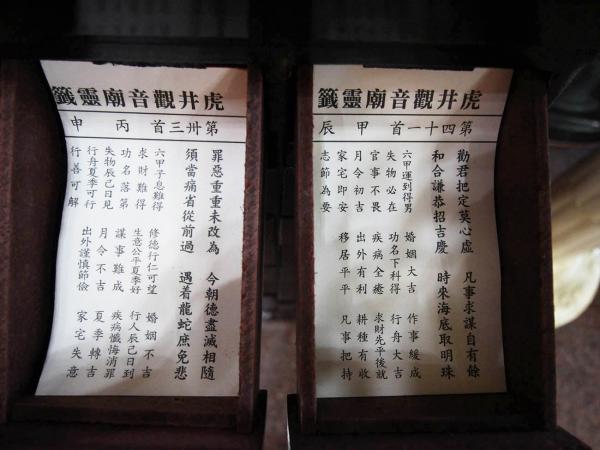 虎井觀音廟靈籤
第四十一首 甲 辰
勸君把定莫心虛 凡事求謀自有餘
和合謙恭招吉慶 時來海底取明珠
六甲運到得男 婚姻大吉 作事緩成
失物必在 功名下科得 行舟大吉
官事不畏 疾病全癒 求財先平後就
月令初吉 出外有利 耕種有收
家宅即安 移居平平 凡事把持
志節為要
虎井觀音廟靈籤
第卅三首 丙 申
罪惡重重未改為 今朝德盡滅相隨
須當痛省從前過 遇着龍蛇庶免悲
六甲子息難得 修德行仁可望 婚姻不吉
求財難得 生意公平夏季好 行人辰巳日到
功名落第 謀事難成 疾病懺悔消罪
失物辰巳日見 月令不吉 夏季轉吉
行舟夏季可行 出外謹慎節儉 家宅失意
行善可解